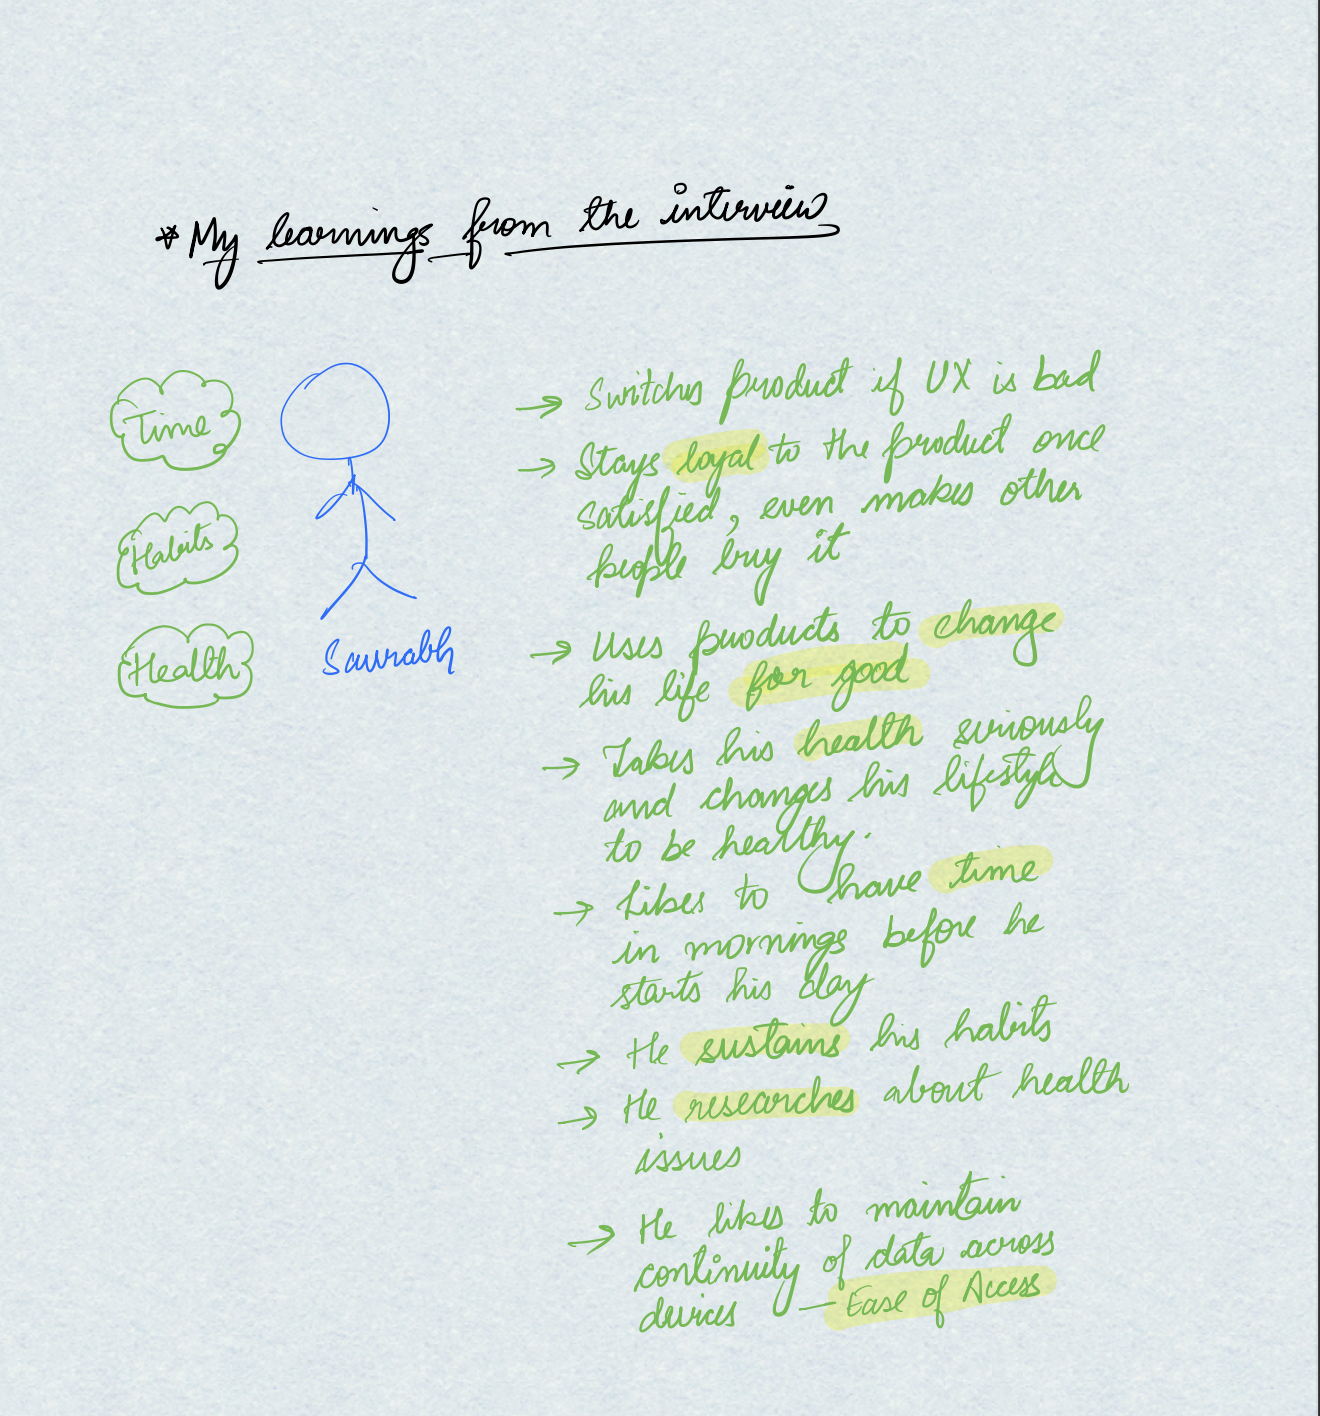 * My learnings from the interview
Time
Habits
Health
Saurabh
→ Switches product if UX is bad
→ Stays loyal to the product once
satisfied, even makes other
people buy it
→ Uses products to change
his life for good
→ Takes his health seriously
and changes his lifestyle
to be healthy.
→ Likes to have time
in mornings before he
starts his day
→ He sustains his habits
→ He researches about health
issues
→ He likes to maintain
continuity of data across
devices — Ease of Access